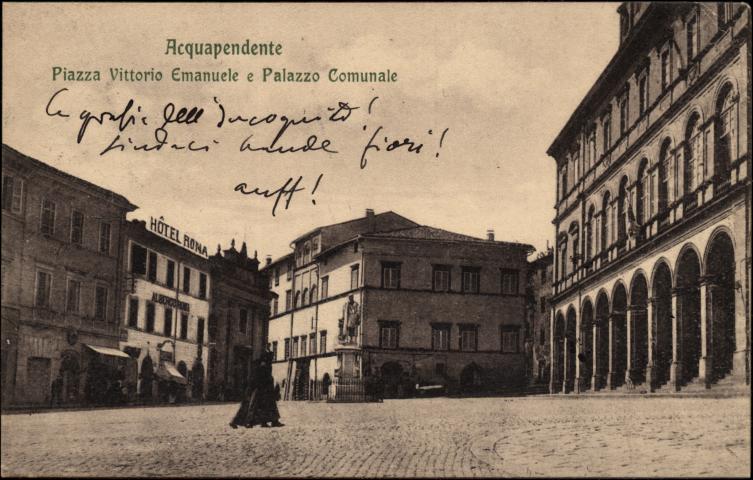 Acquapendente
Piazza Vittorio Emanuele e Palazzo Comunale
La grafia dell'Incognito!
manda fiori!
auff!
HÔTEL ROMA
ALBERGO